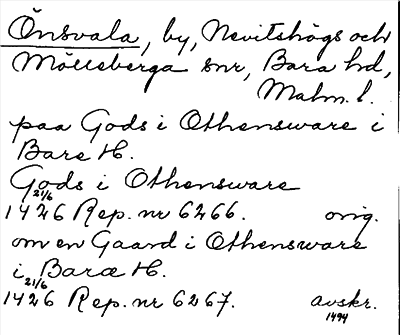 Önsvala, by, Nevitshögs och
Mölleberga snr, Bara hd,
Malm. l.
paa Gods i Othensware i
Bare H.
Gods i Othensware
21/6
1426 Rep. nr 6266. orig.
om en Gaard i Othensware
i Baræ H.
21/6
1426 Rep. nr 6267. avskr.
1494